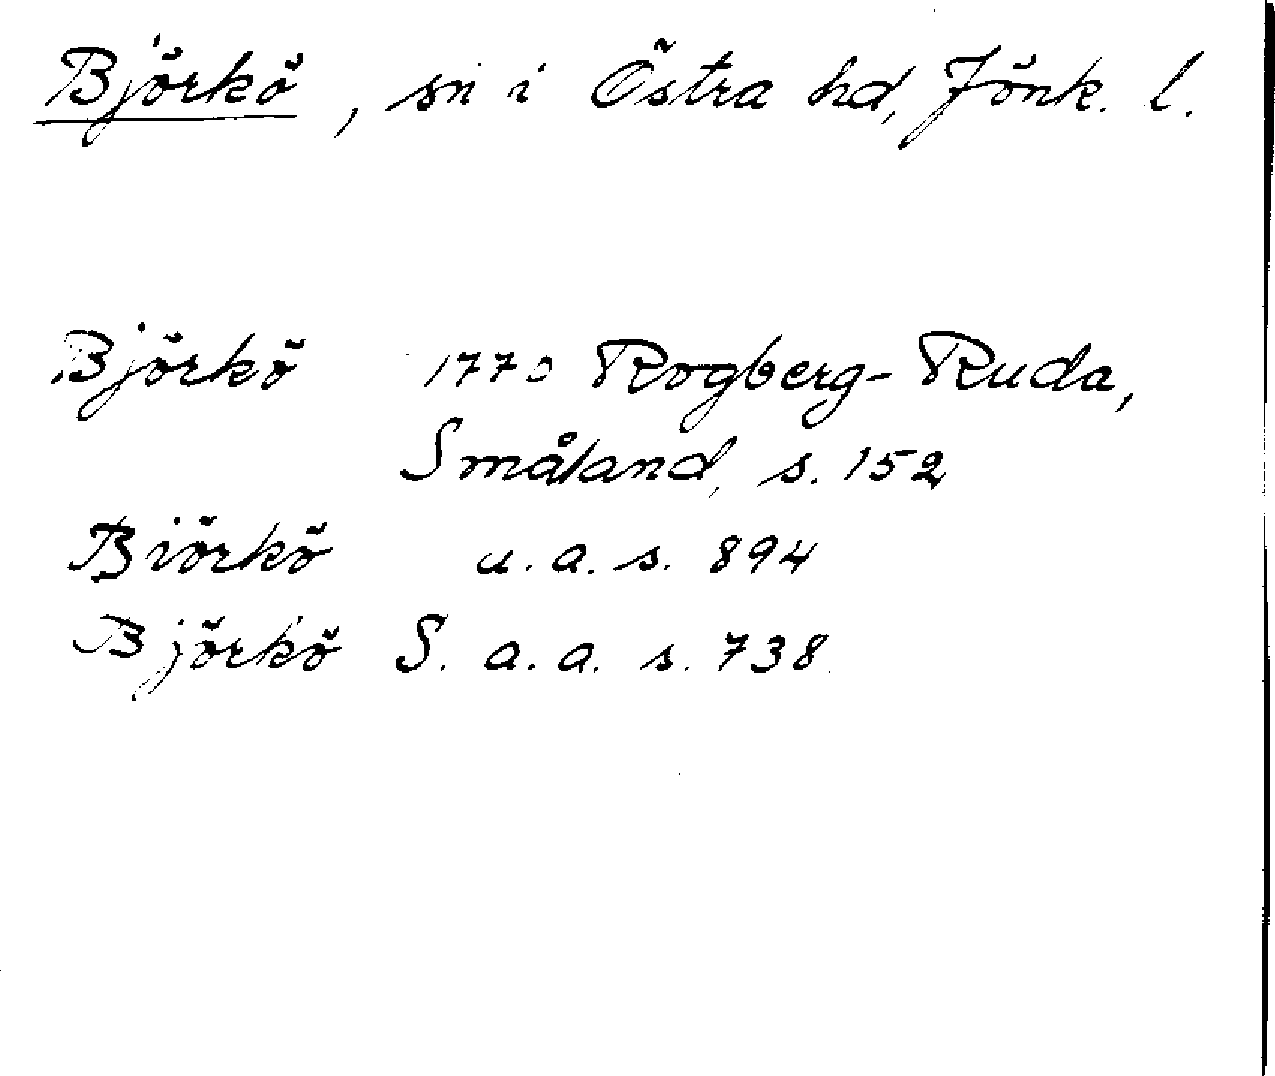 Björkö, sn i Östra hd, Jönk. l.
Björkö 1770 Rogberg-Ruda,
Småland, s. 152
Biörkö u. a. s. 894
Björkö S. a. a. s. 738